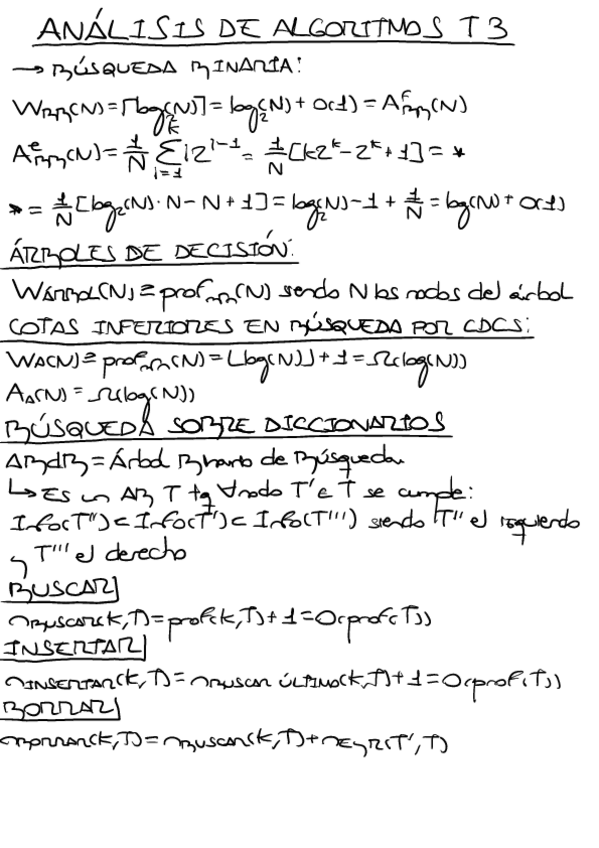 ANÁLISIS DE ALGORITMOS T3
→ BÚSQUEDA BINARIA:
W_BB(N) = ⌈log₂(N)⌉ = log₂(N) + O(1) = A^f_BB(N)
A^e_BB(N) = 1/N Σ_{i=1}^{k} i2^{i-1} = 1/N [k2^k - 2^k + 1] = *
* = 1/N [log₂(N)·N - N + 1] = log₂(N) - 1 + 1/N = log(N) + O(1)
ÁRBOLES DE DECISIÓN:
WÁRBOL(N) ≥ prof_min(N) siendo N los nodos del árbol
COTAS INFERIORES EN BÚSQUEDA POR CDCS:
W_A(N) ≥ prof_min(N) = ⌊log(N)⌋ + 1 = Ω(log(N))
A_A(N) = Ω(log(N))
BÚSQUEDA SOBRE DICCIONARIOS
ABdB = Árbol Binario de Búsqueda
↳ Es un AB T tq ∀nodo T' ∈ T se cumple:
Info(T'') < Info(T') < Info(T''') siendo T'' el izquierdo
y T''' el derecho
BUSCAR
n_BUSCAR(k,T) = prof(k,T) + 1 = O(prof(T))
INSERTAR
n_INSERTAR(k,T) = n_BUSCAR ÚLTIMO(k,T) + 1 = O(prof(T))
BORRAR
n_BORRAR(k,T) = n_BUSCAR(k,T) + n_EyR(T',T)